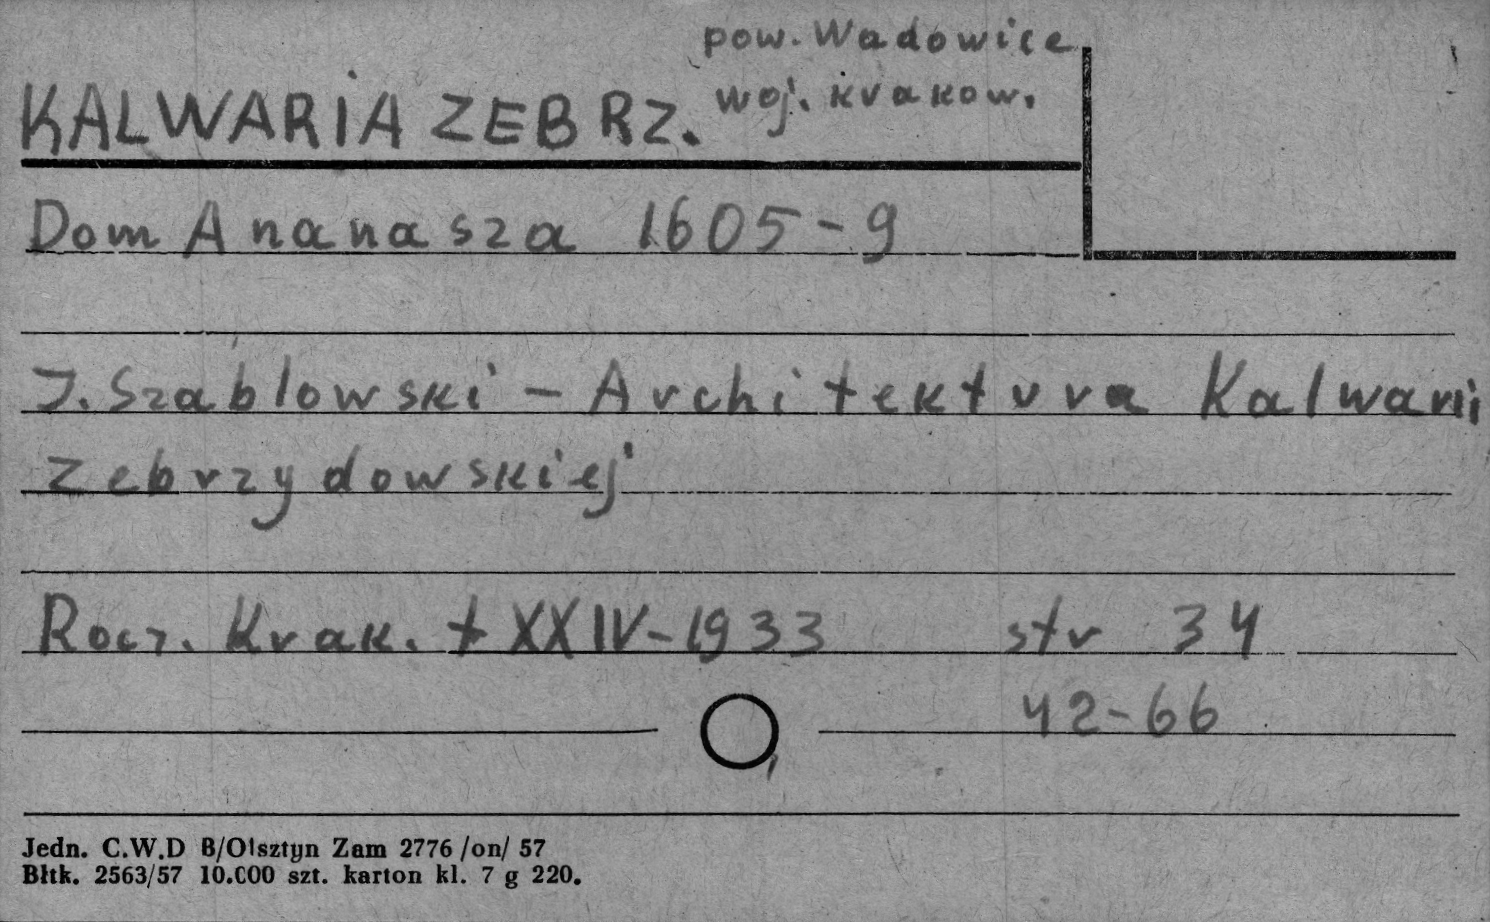 pow. Wadowice
KALWARIA ZEBRZ. woj. krakow.
Dom Ananasza 1605-9
J. Szablowski - Architektura Kalwarii
Zebrzydowskiej
Rocz. Krak. t XXIV-1933 str 34
42-66
Jedn. C.W.D B/Olsztyn Zam 2776 /on/ 57
Błtk. 2563/57 10.000 szt. karton kl. 7 g 220.